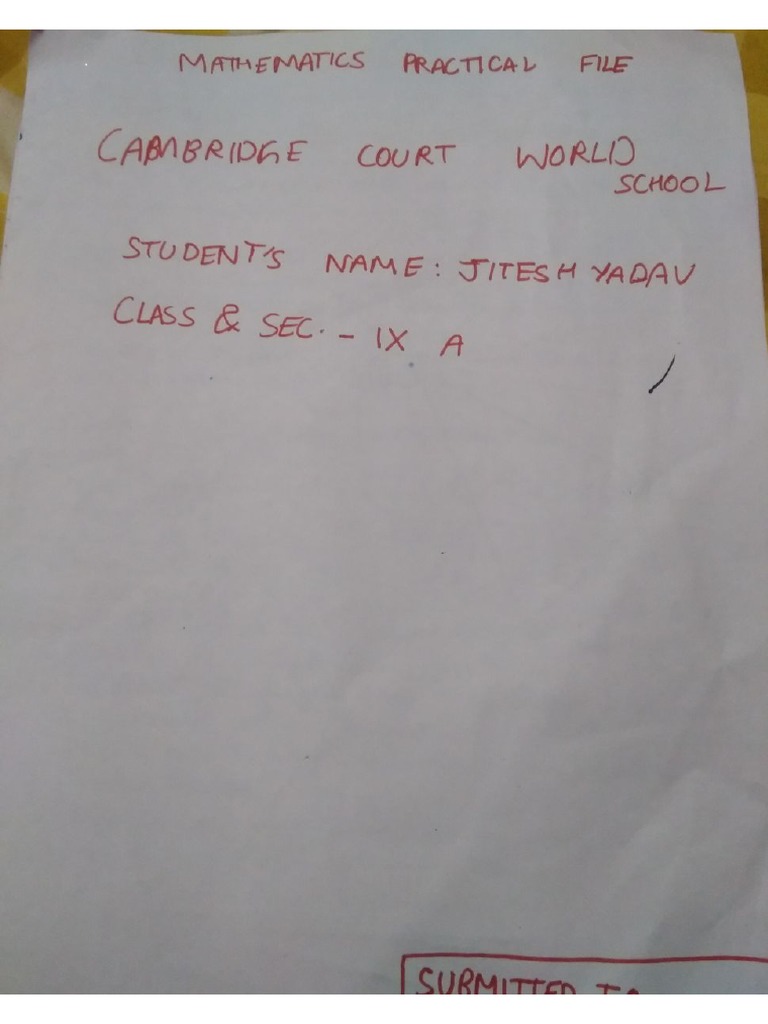 MATHEMATICS PRACTICAL FILE
CAMBRIDGE COURT WORLD
SCHOOL
STUDENT'S NAME: JITESH YADAV
CLASS & SEC. - IX A
SUBMITTED TO